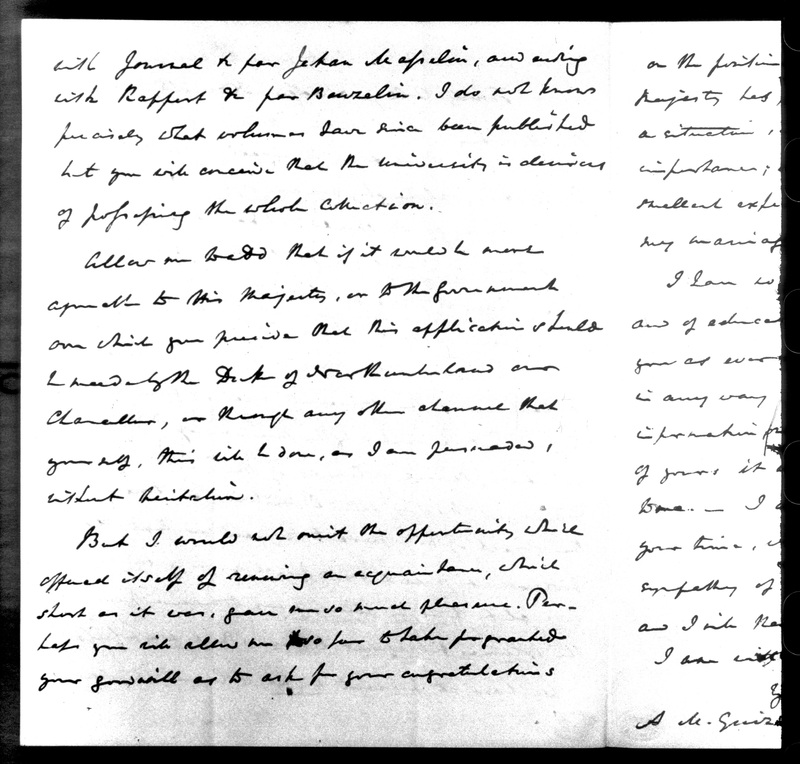 with Journal &c par Jehan Masselin, and ending
with Rapport &c par Bouzelin. I do not know
precisely what volumes have since been published
but you will conceive that the University is desirous
of possessing the whole collection.
Allow me to add that if it would be more
agreeable to His Majesty, or to the Government
over which you preside that this application should
be made by the Duke of Northumberland our
Chancellor, or through any other channel than
yourself, this will be done, as I am persuaded,
without hesitation.
But I would not omit the opportunity which
offered itself of renewing an acquaintance, which
short as it was, gave me so much pleasure. Per-
haps you will allow me so far to take for granted
your goodwill as to ask for your congratulations
on the position
Majesty has
a situation
importance;
excellent expe
my marriag
I have
and of educat
you as ever
in any way
information
of yours it
time. — I
your time,
sympathy of
and I will
I am with
A M. Guizo